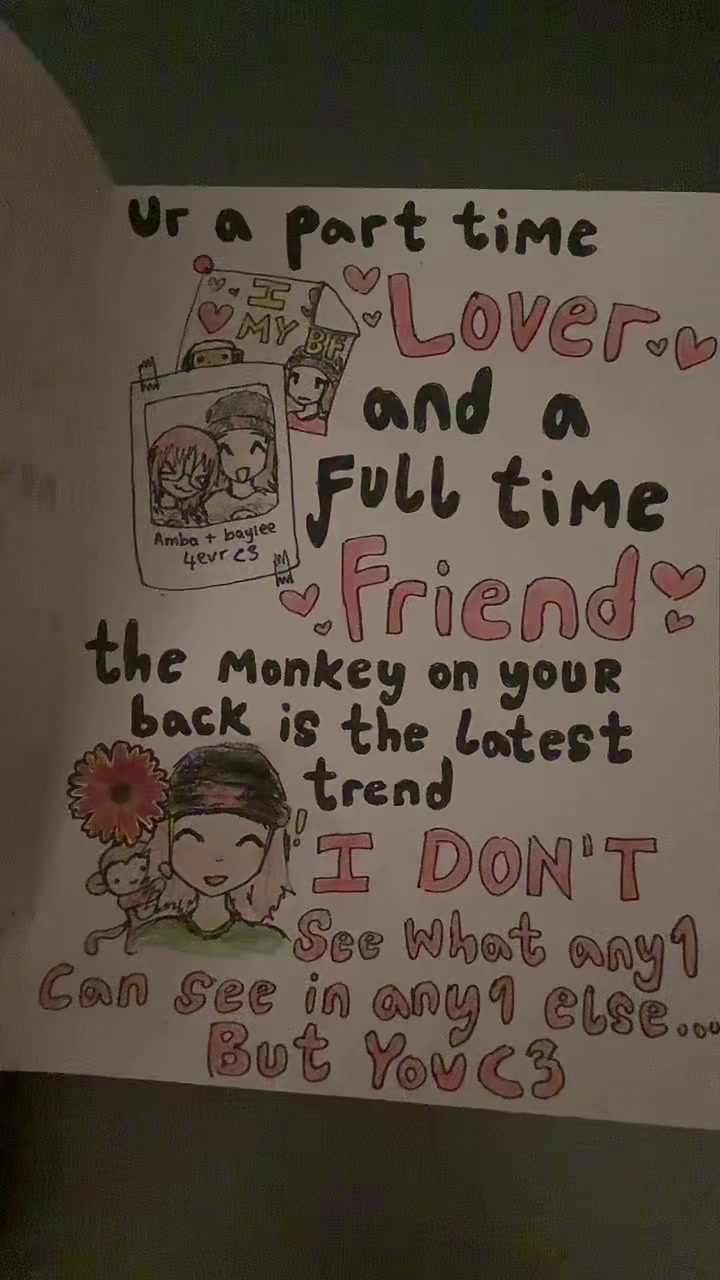 ur a part time
I
MY BF
Lover
and a
Full time
Amba + baylee
4evr <3
Friend
the monkey on youR
back is the latest
trend
!
I DON'T
See what any1
can see in any1 else...
But You <3